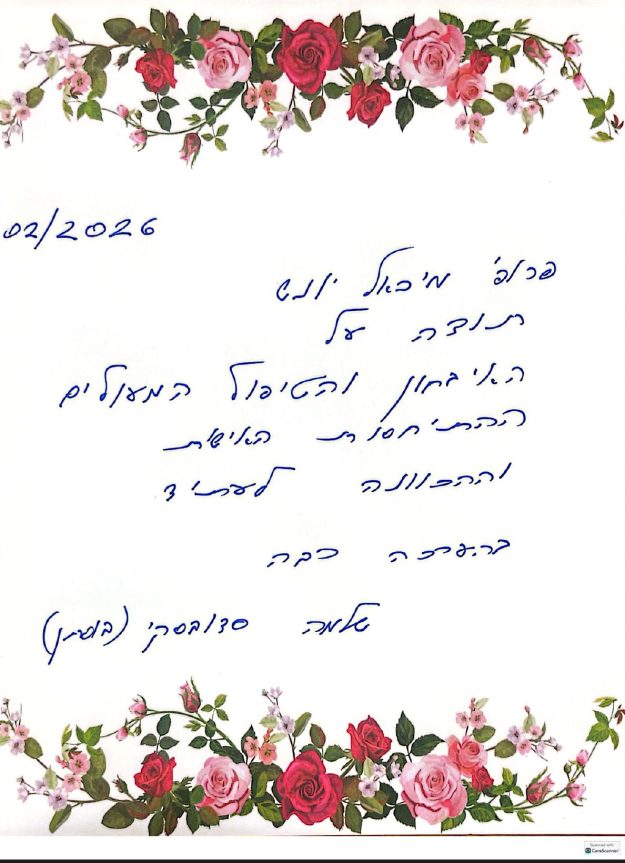 02/2026
פרופ' מיכאל יונש
תודה על
האיבחון והטיפול המעולים
ההתיחסות האישית
וההכוונה לעתיד
בהערכה רבה
שלמה סדובסקי (בוסתן)
Scanned with
CamScanner